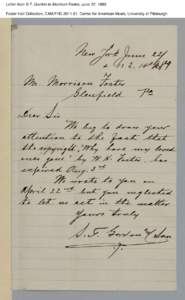 Letter from S.T. Gordon to Morrison Foster, June 22, 1889
Foster Hall Collection, CAM.FHC.2011.01, Center for American Music, University of Pittsburgh.
New York June 22/
1889
Mr. Morrison Foster
Glenfield Pa
Dear Sir
We beg to draw your
attention to the fact that
the copyright, "Why have my loved
ones gone" by
expired Aug. 2nd
We wrote to you on
April 22nd but you neglected
to let us act in the matter
Yours truly
S. T. Gordon & Son